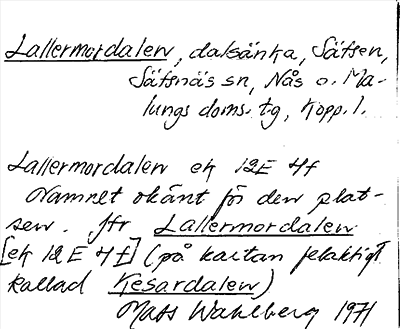 Lallermordalen, dalsänka, Sätsen,
Säfsnäs sn, Nås o. Ma-
lungs doms. tg, Kopp. l.
Lallermordalen ek 12E 4f
Namnet okänt för den plat-
sen. Jfr Lallermordalen
[ek 12 E 4 f] (på kartan felaktigt
kallad Kesardalen)
Mats Wahlberg 1971